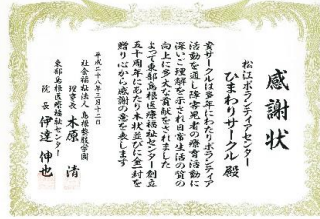 感謝状
松江ボランティアセンター
ひまわりサークル 殿
貴サークルは多年にわたりボランティア
活動を通し障害児者の療育活動に
深いご理解を示され日常生活の質の
向上に多大な貢献をされました
よって東部島根医療福祉センター創立
五十周年にあたり本状並びに金一封を
贈り心から感謝の意を表します
平成二十八年三月十二日
社会福祉法人 島根整肢学園
理事長 木原 清
東部島根医療福祉センター
院長 伊達 伸也